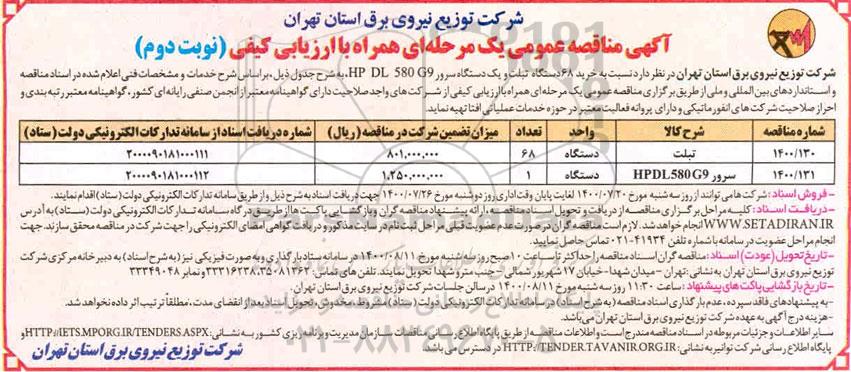 شرکت توزیع نیروی برق استان تهران
آگهی مناقصه عمومی یک مرحله‌ای همراه با ارزیابی کیفی (نوبت دوم)
شرکت توزیع نیروی برق استان تهران در نظر دارد نسبت به خرید ۶۸ دستگاه تبلت و یک دستگاه سرور HP DL 580 G9، به شرح جدول ذیل، براساس شرح خدمات و مشخصات فنی اعلام شده در اسناد مناقصه
و استانداردهای بین المللی و ملی از طریق برگزاری مناقصه عمومی یک مرحله‌ای همراه با ارزیابی کیفی از شرکت های واجد صلاحیت دارای گواهینامه معتبر از انجمن صنفی رایانه ای کشور، گواهینامه معتبر رتبه بندی و
احراز صلاحیت شرکت های انفورماتیکی و دارای پروانه فعالیت معتبر در حوزه خدمات عملیاتی افتا تهیه نماید.
شماره مناقصه شرح کالا واحد تعداد میزان تضمین شرکت در مناقصه (ریال) شماره دریافت اسناد از سامانه تدارکات الکترونیکی دولت (ستاد)
۱۴۰۰/۱۳۰ تبلت دستگاه ۶۸ ۸۰۱,۰۰۰,۰۰۰ ۲۰۰۰۰۹۰۱۸۱۰۰۰۱۱۱
۱۴۰۰/۱۳۱ سرور HPDL580G9 دستگاه ۱ ۱,۲۵۰,۰۰۰,۰۰۰ ۲۰۰۰۰۹۰۱۸۱۰۰۰۱۱۲
- فروش اسناد: شرکت ها می توانند از روز سه شنبه مورخ ۱۴۰۰/۰۷/۲۰ لغایت پایان وقت اداری روز دوشنبه مورخ ۱۴۰۰/۰۷/۲۶ جهت دریافت اسناد به شرح ذیل و از طریق سامانه تدارکات الکترونیکی دولت (ستاد) اقدام نمایند.
- دریافت اسناد: کلیه مراحل برگزاری مناقصه از دریافت و تحویل اسناد مناقصه تا ارائه پیشنهاد مناقصه گران و بازگشایی پاکت ها از طریق درگاه سامانه تدارکات الکترونیکی دولت (ستاد) به آدرس
WWW.SETADIRAN.IR انجام خواهد شد. لازم است مناقصه گران در صورت عدم عضویت قبلی مراحل ثبت نام در سایت مذکور و دریافت گواهی امضای الکترونیکی را جهت شرکت در مناقصه محقق سازند. جهت
انجام مراحل عضویت در سامانه با شماره تلفن ۴۱۹۳۴-۰۲۱ تماس حاصل نمایید.
- تاریخ تحویل (عودت) اسناد: مناقصه گران اسناد مناقصه را حداکثر تا ساعت ۱۰ صبح روز سه شنبه مورخ ۱۴۰۰/۰۸/۱۱ در سامانه ستاد بارگذاری و به صورت فیزیکی نیز (به شرح اسناد) به دبیرخانه مرکزی شرکت
توزیع نیروی برق استان تهران به نشانی: تهران - میدان شهدا - خیابان ۱۷ شهریور شمالی - جنب مترو شهدا تحویل نمایند. تلفن های تماس: ۳۵۰۸۱۳۶۲، ۳۳۳۱۶۲۳۸ و نمابر ۳۳۳۴۹۰۴۸
- تاریخ بازگشایی پاکت های پیشنهاد: ساعت ۱۱:۳۰ روز سه شنبه مورخ ۱۴۰۰/۰۸/۱۱ در سالن جلسات شرکت توزیع نیروی برق استان تهران.
- به پیشنهادهای فاقد سپرده، عدم بارگذاری اسناد مناقصه (به شرح اسناد) در سامانه تدارکات الکترونیکی دولت (ستاد)، مشروط، مخدوش، تحویل اسناد بعد از انقضای مدت، مطلقاً ترتیب اثر داده نخواهد شد.
- هزینه درج آگهی به عهده شرکت توزیع نیروی برق استان تهران می باشد.
سایر اطلاعات و جزئیات مربوطه در اسناد مناقصه مندرج است و اطلاعات مناقصه از طریق پایگاه اطلاع رسانی مناقصات سازمان مدیریت و برنامه ریزی کشور به نشانی: HTTP://IETS.MPORG.IR/TENDERS.ASPX و
پایگاه اطلاع رسانی شرکت توانیر به نشانی: HTTP://TENDER.TAVANIR.ORG.IR در دسترس می باشد.
شرکت توزیع نیروی برق استان تهران